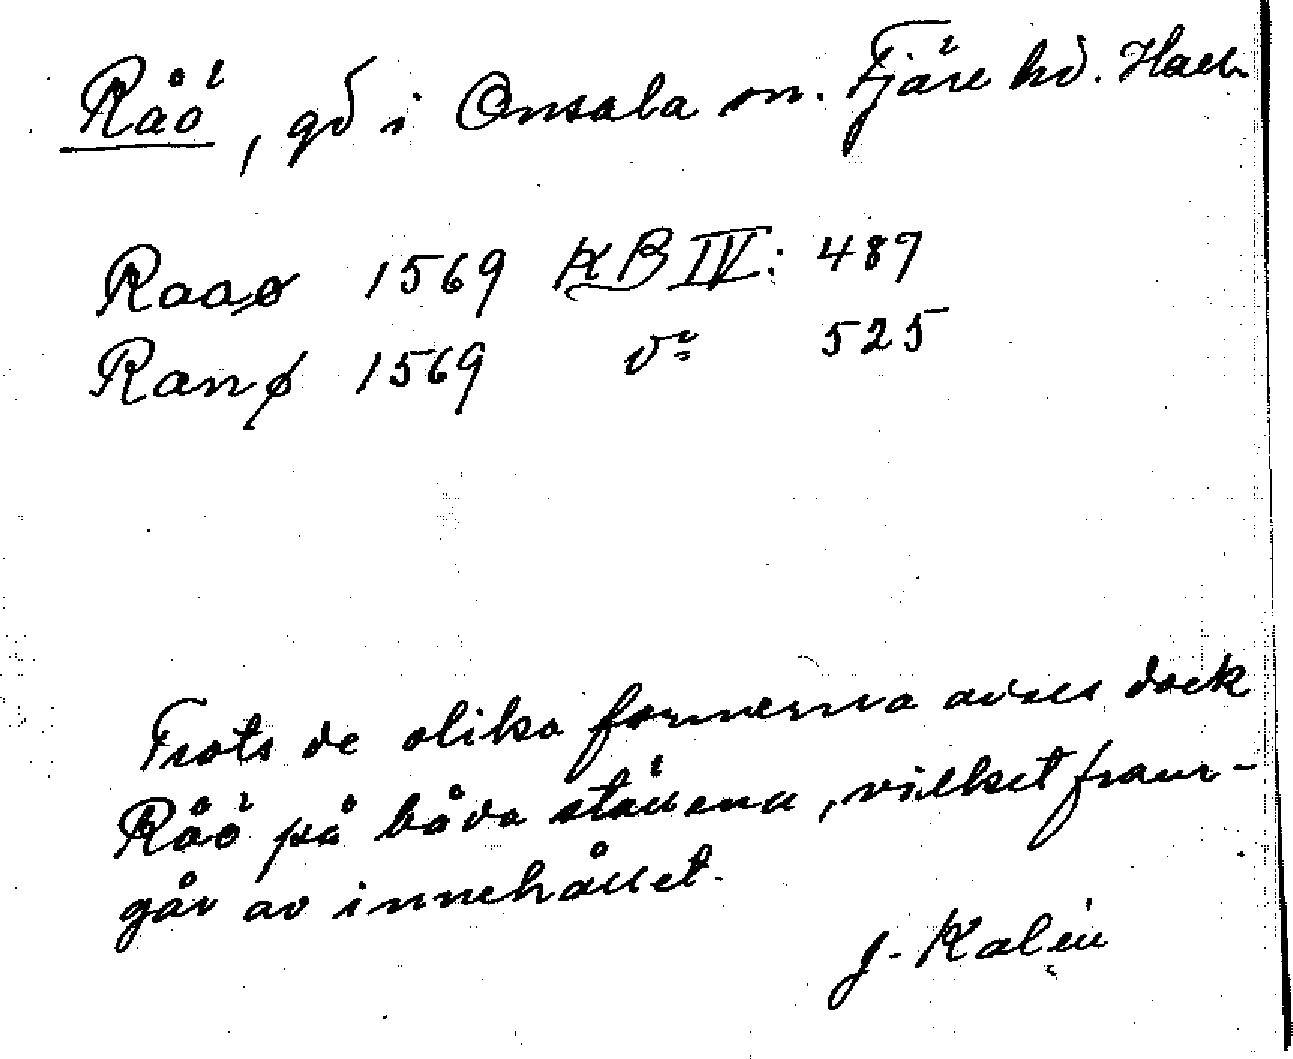 Råö, gd i Onsala sn. Fjäre hd. Hall.
Raaø 1569 KB IV: 487
Ranø 1569 d:o 525
Trots de olika formerna avses dock
Råö på båda ställena, vilket fram-
går av innehållet.
J. Kalén